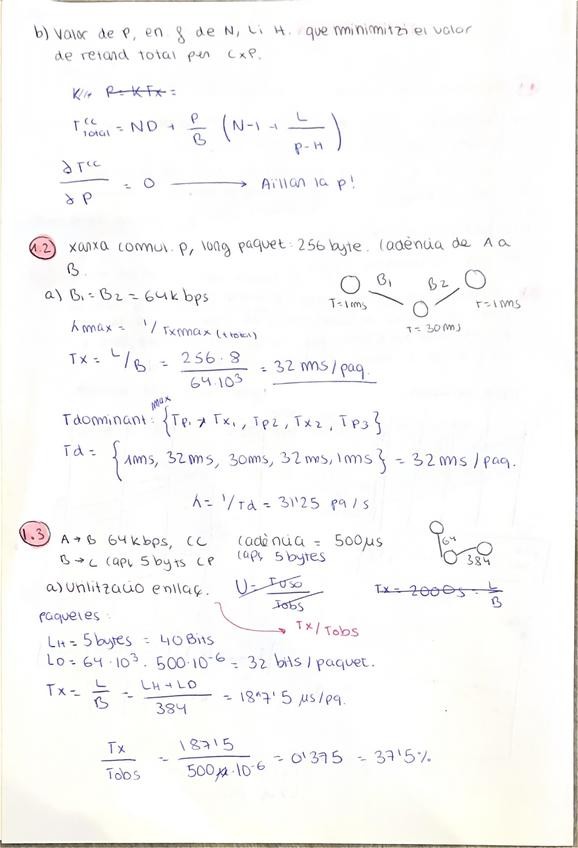 b) Valor de P, en f de N, L i H. que minimitzi el valor
de retard total per CxP.
K/P P = K Tx =
T CC Total = ND + P/B (N-1 + L/(P-H))
∂T^CC/∂P = 0 → Aïllan la p!
1.2 xarxa commu. P, long paquet: 256 byte. Cadència de A a
B.
a) B1 = B2 = 64 kbps
B1 B2
T=1ms T=1ms
T = 30ms
λmax = 1/Txmax (total)
Tx = L/B = 256·8/64·10^3 = 32 ms/paq.
Tdominant: max {Tp1, Tx1, Tp2, Tx2, Tp3}
Td = {1ms, 32ms, 30ms, 32ms, 1ms} = 32 ms/paq.
λ = 1/Td = 31'25 pq/s
1.3 A→B 64kbps, CC cadència = 500μs
B→C Cap: 5 byts CP Cap: 5 bytes
64 384
a) Utilització enllaç. U = Tuso/Tobs Tx = 2000s = L/B
Tx/Tobs
paquetes:
LH = 5 bytes = 40 Bits
LD = 64·10^3 · 500·10^-6 = 32 bits/paquet.
Tx = L/B = (LH+LD)/384 = 187'5 μs/pq.
Tx/Tobs = 187'5/500·10^-6 = 0'375 = 37'5%